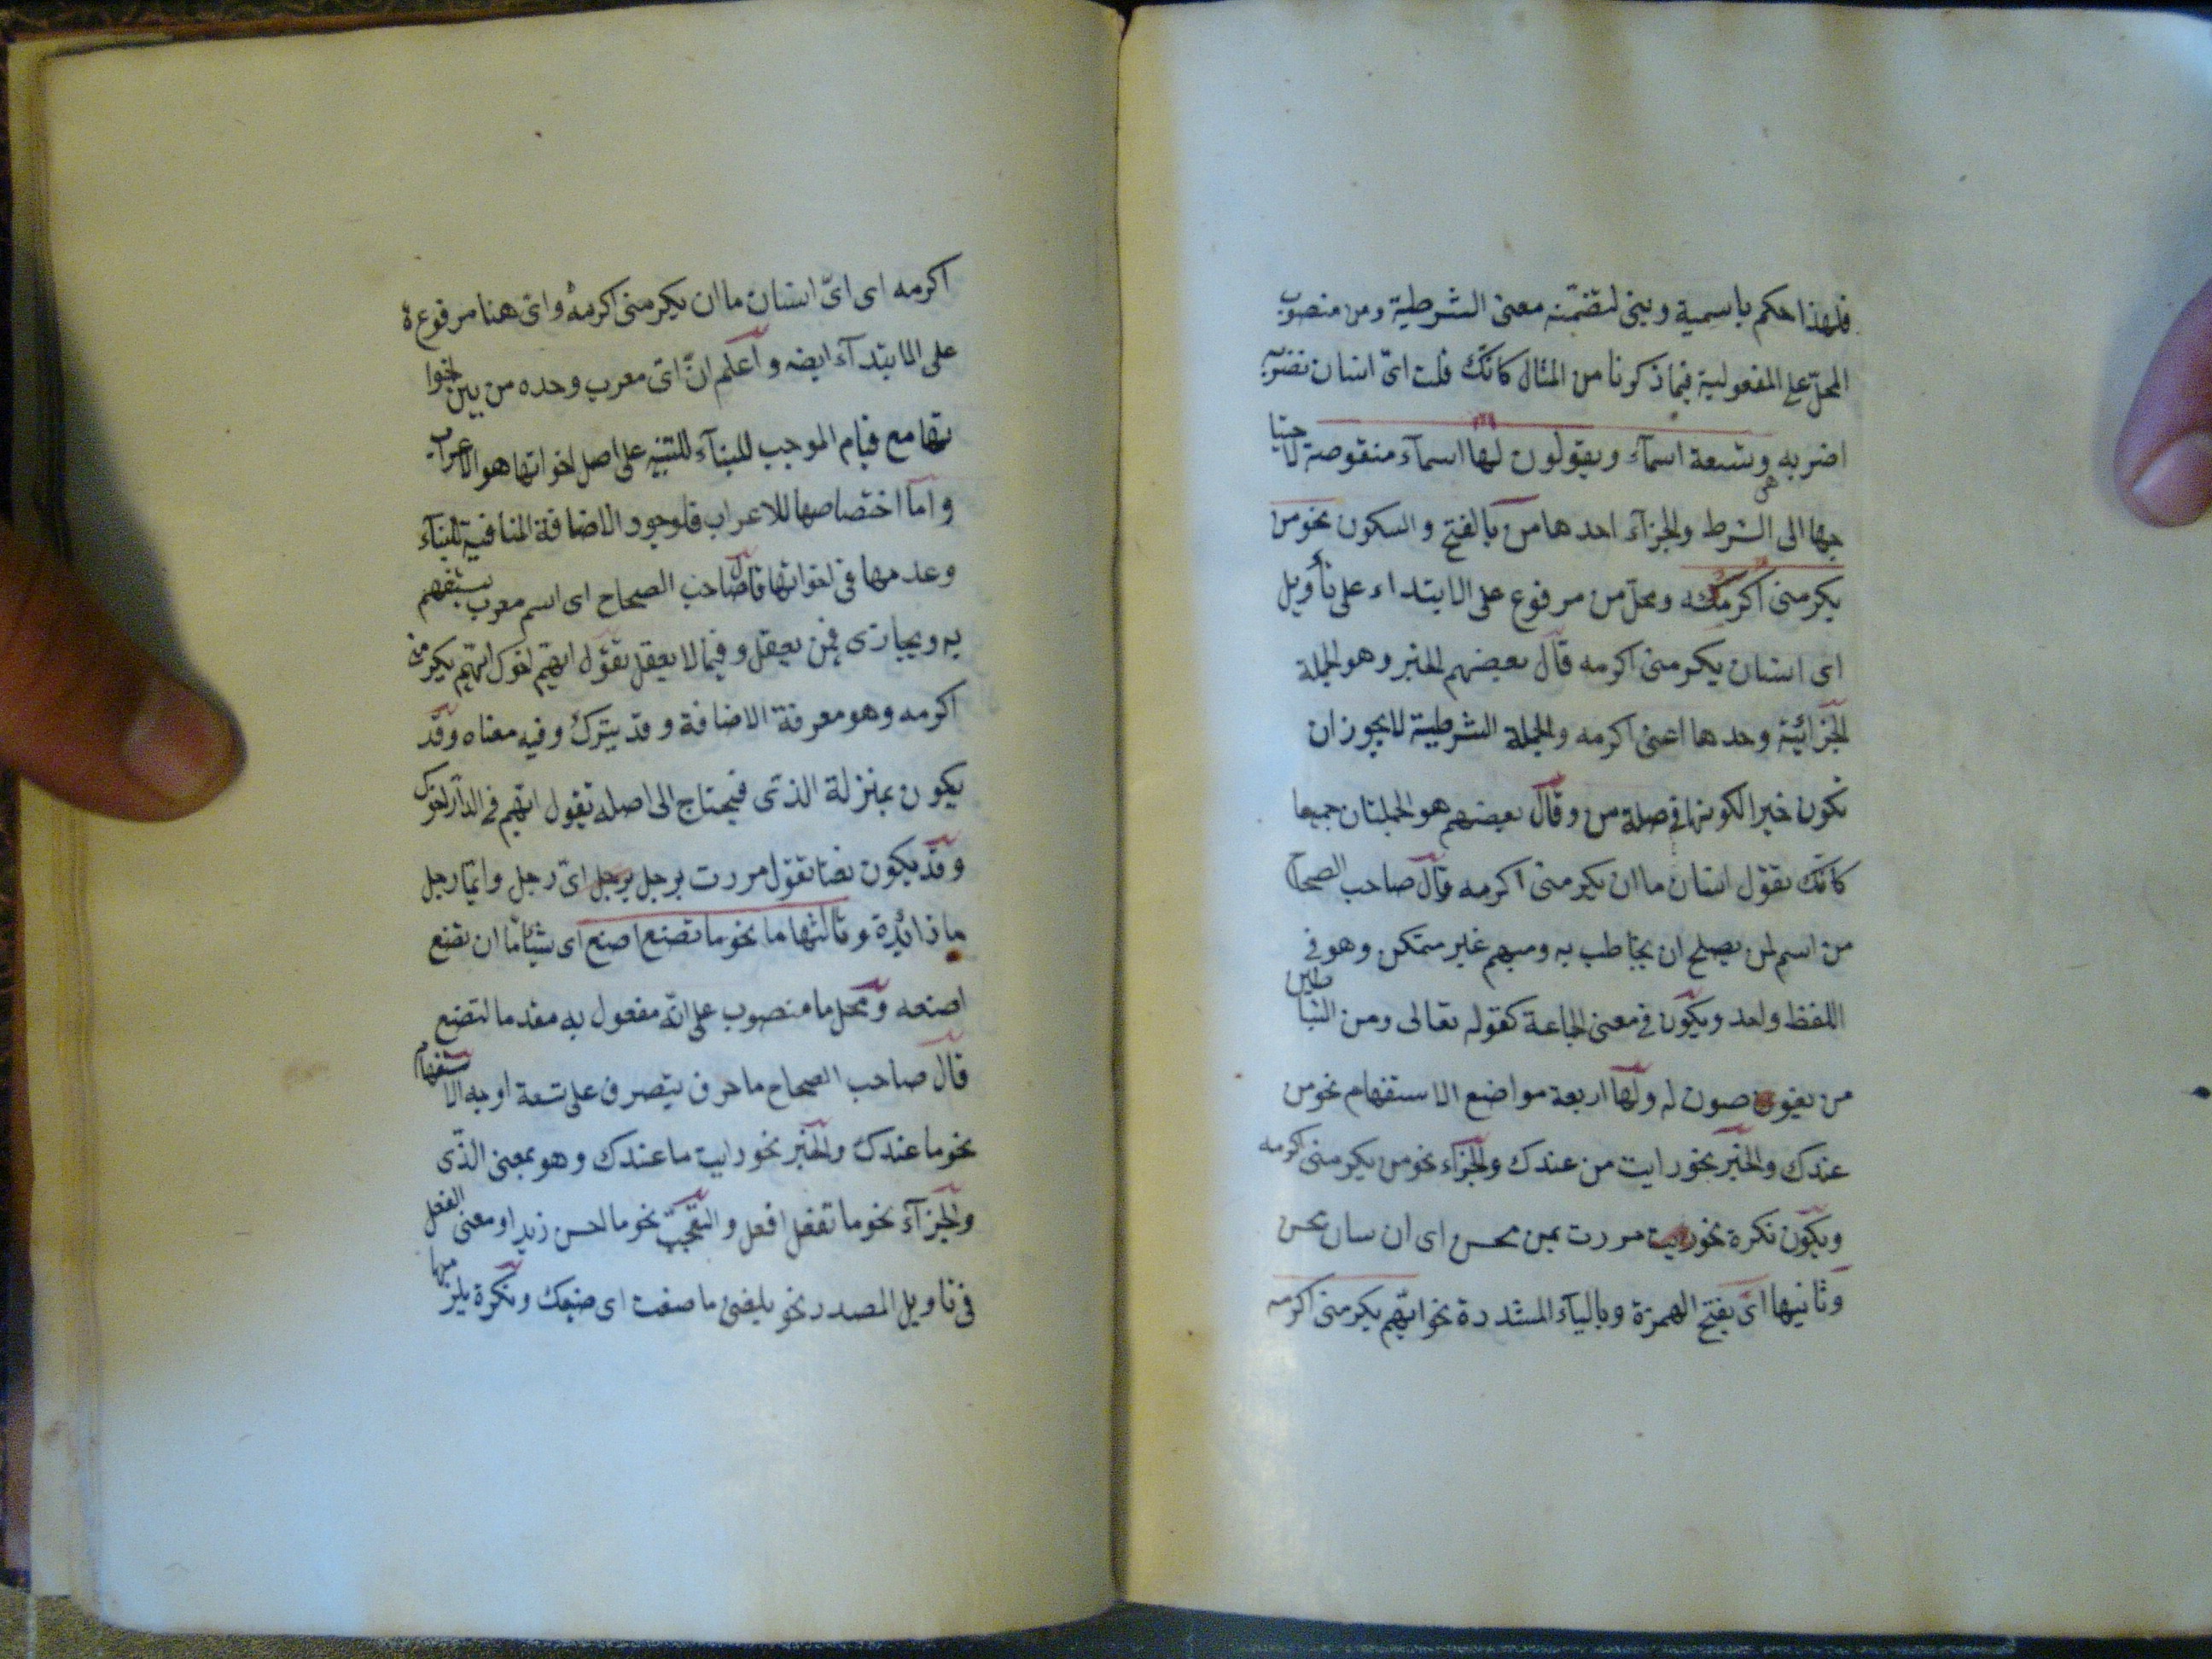 فلهذا حكم باسمية وبنى لتضمنه معنى الشرطية ومن منصوب
المحلّ على المفعولية فيما ذكرنا من المثال كانّك قلت اىّ انسان تضربه
اضربه وتسعة اسمآء ويقولون لها اسمآء منقوصة لاحتيا
جها الى الشرط والجزآء احدها من بالفتح والسكون نحو من
يكرمنى اكرمه ومحلّ من مرفوع على الابتداء على تأويل
اى انسان يكرمنى اكرمه قال بعضهم الخبر وهو الجملة
الجزائية وحدها اعنى اكرمه والجملة الشرطية لا يجوز ان
تكون خبرا لكونها فى صلة من وقال بعضهم هو الجملتان جميعا
كانّك تقول انسان ما ان يكرمنى اكرمه وقال صاحب الصحاح
من اسم لمن يصلح ان يخاطب به ومبهم غير متمكن وهو فى
اللفظ واحد ويكون فى معنى الجماعة كقوله تعالى ومن الشياطين
من يغوصون له ولها اربعة مواضع الاستفهام نحو من
عندك والخبر نحو رايت من عندك والجزاء نحو من يكرمنى اكرمه
ويكون نكرة نحو مررت بمن محسن اى انسان محسن
وثانيها اىّ بفتح الهمزة وبالياء المشددة نحو ايّهم يكرمنى اكرمه
اكرمه اى اىّ انسان ما ان يكرمنى اكرمه واىّ هنا مرفوعة
على الابتدآء ايضه واعلم انّ اىّ معرب وحده من بين اخوا
تها مع قيام الموجب للبنآء للتنبيه على اصل اخواتها هو الاعراب
واما اختصاصها للاعراب فلوجود الاضافة المنافية للبنآء
وعدمها فى اخواتها قال صاحب الصحاح اى اسم معرب يستفهم
به ويجازى فيمن يعقل وفيما لا يعقل تقول ايّهم اخوك ايّهم يكرمنى
اكرمه وهو معرفة الاضافة وقد يترك وفيه معناه وقد
يكون بمنزلة الذى فيحتاج الى اصله تقول ايّهم فى الدار اخوك
وقد يكون نعتا تقول مررت برجل اىّ رجل وايّما رجل
ما زائدة وثالثها ما نحو ما تصنع اصنع اى شيئا ما ان تصنع
اصنعه ومحل ما منصوب على انّه مفعول به مقدما لتصنع
قال صاحب الصحاح ما حرف يتصرف على تسعة اوجه الاستفهام
نحو ما عندك والخبر نحو رايت ما عندك وهو بمعنى الذى
والجزآء نحو ما تفعل افعل والتعجّب نحو ما احسن زيد او معنى الفعل
فى تاويل المصدر نحو بلغنى ما صنعت اى صنيعك ونكرة يلزمها